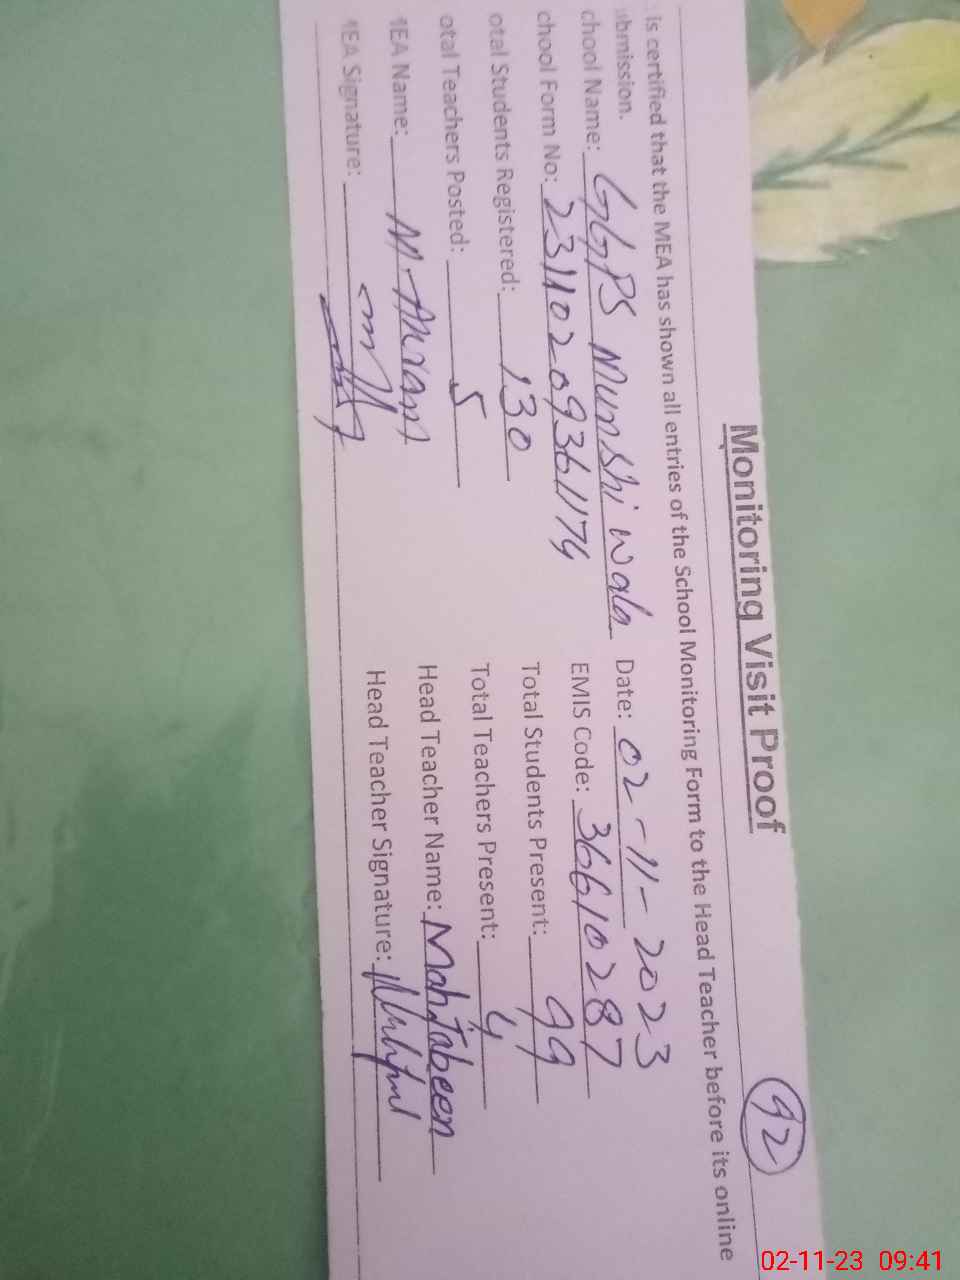 Monitoring Visit Proof
92
is certified that the MEA has shown all entries of the School Monitoring Form to the Head Teacher before its online
ubmission.
chool Name: GGPS Munshi wala Date: 02-11-2023
chool Form No: 23110209361174 EMIS Code: 36610287
otal Students Registered: 130 Total Students Present: 99
otal Teachers Posted: 5 Total Teachers Present: 4
MEA Name: M. Akram Head Teacher Name: Mahjabeen
MEA Signature: Head Teacher Signature:
02-11-23 09:41